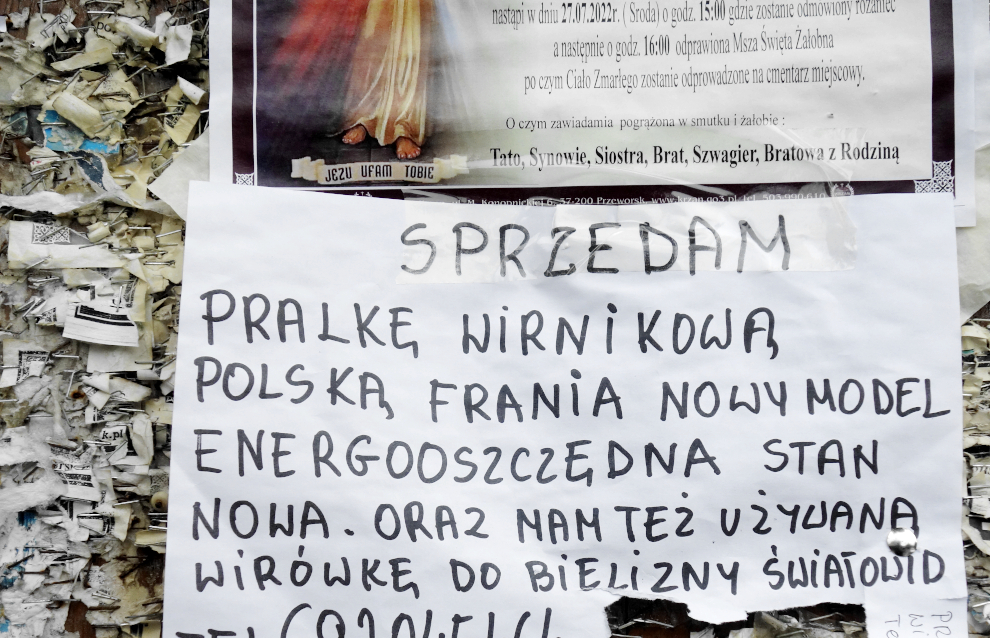 nastąpi w dniu 27.07.2022r. ( Środa) o godz. 15:00 gdzie zostanie odmówiony różaniec
a następnie o godz. 16:00 odprawiona Msza Święta Żałobna
po czym Ciało Zmarłego zostanie odprowadzone na cmentarz miejscowy.
O czym zawiadamia pogrążona w smutku i żałobie :
Tato, Synowie, Siostra, Brat, Szwagier, Bratowa z Rodziną
JEZU UFAM TOBIE
M. Konopnickiej 6, 37-200 Przeworsk,
SPRZEDAM
PRALKĘ WIRNIKOWĄ
POLSKĄ FRANIA NOWY MODEL
ENERGOOSZCZĘDNA STAN
NOWA. ORAZ MAM TEŻ UŻYWANĄ
WIRÓWKĘ DO BIELIZNY ŚWIATOWID
k.pl